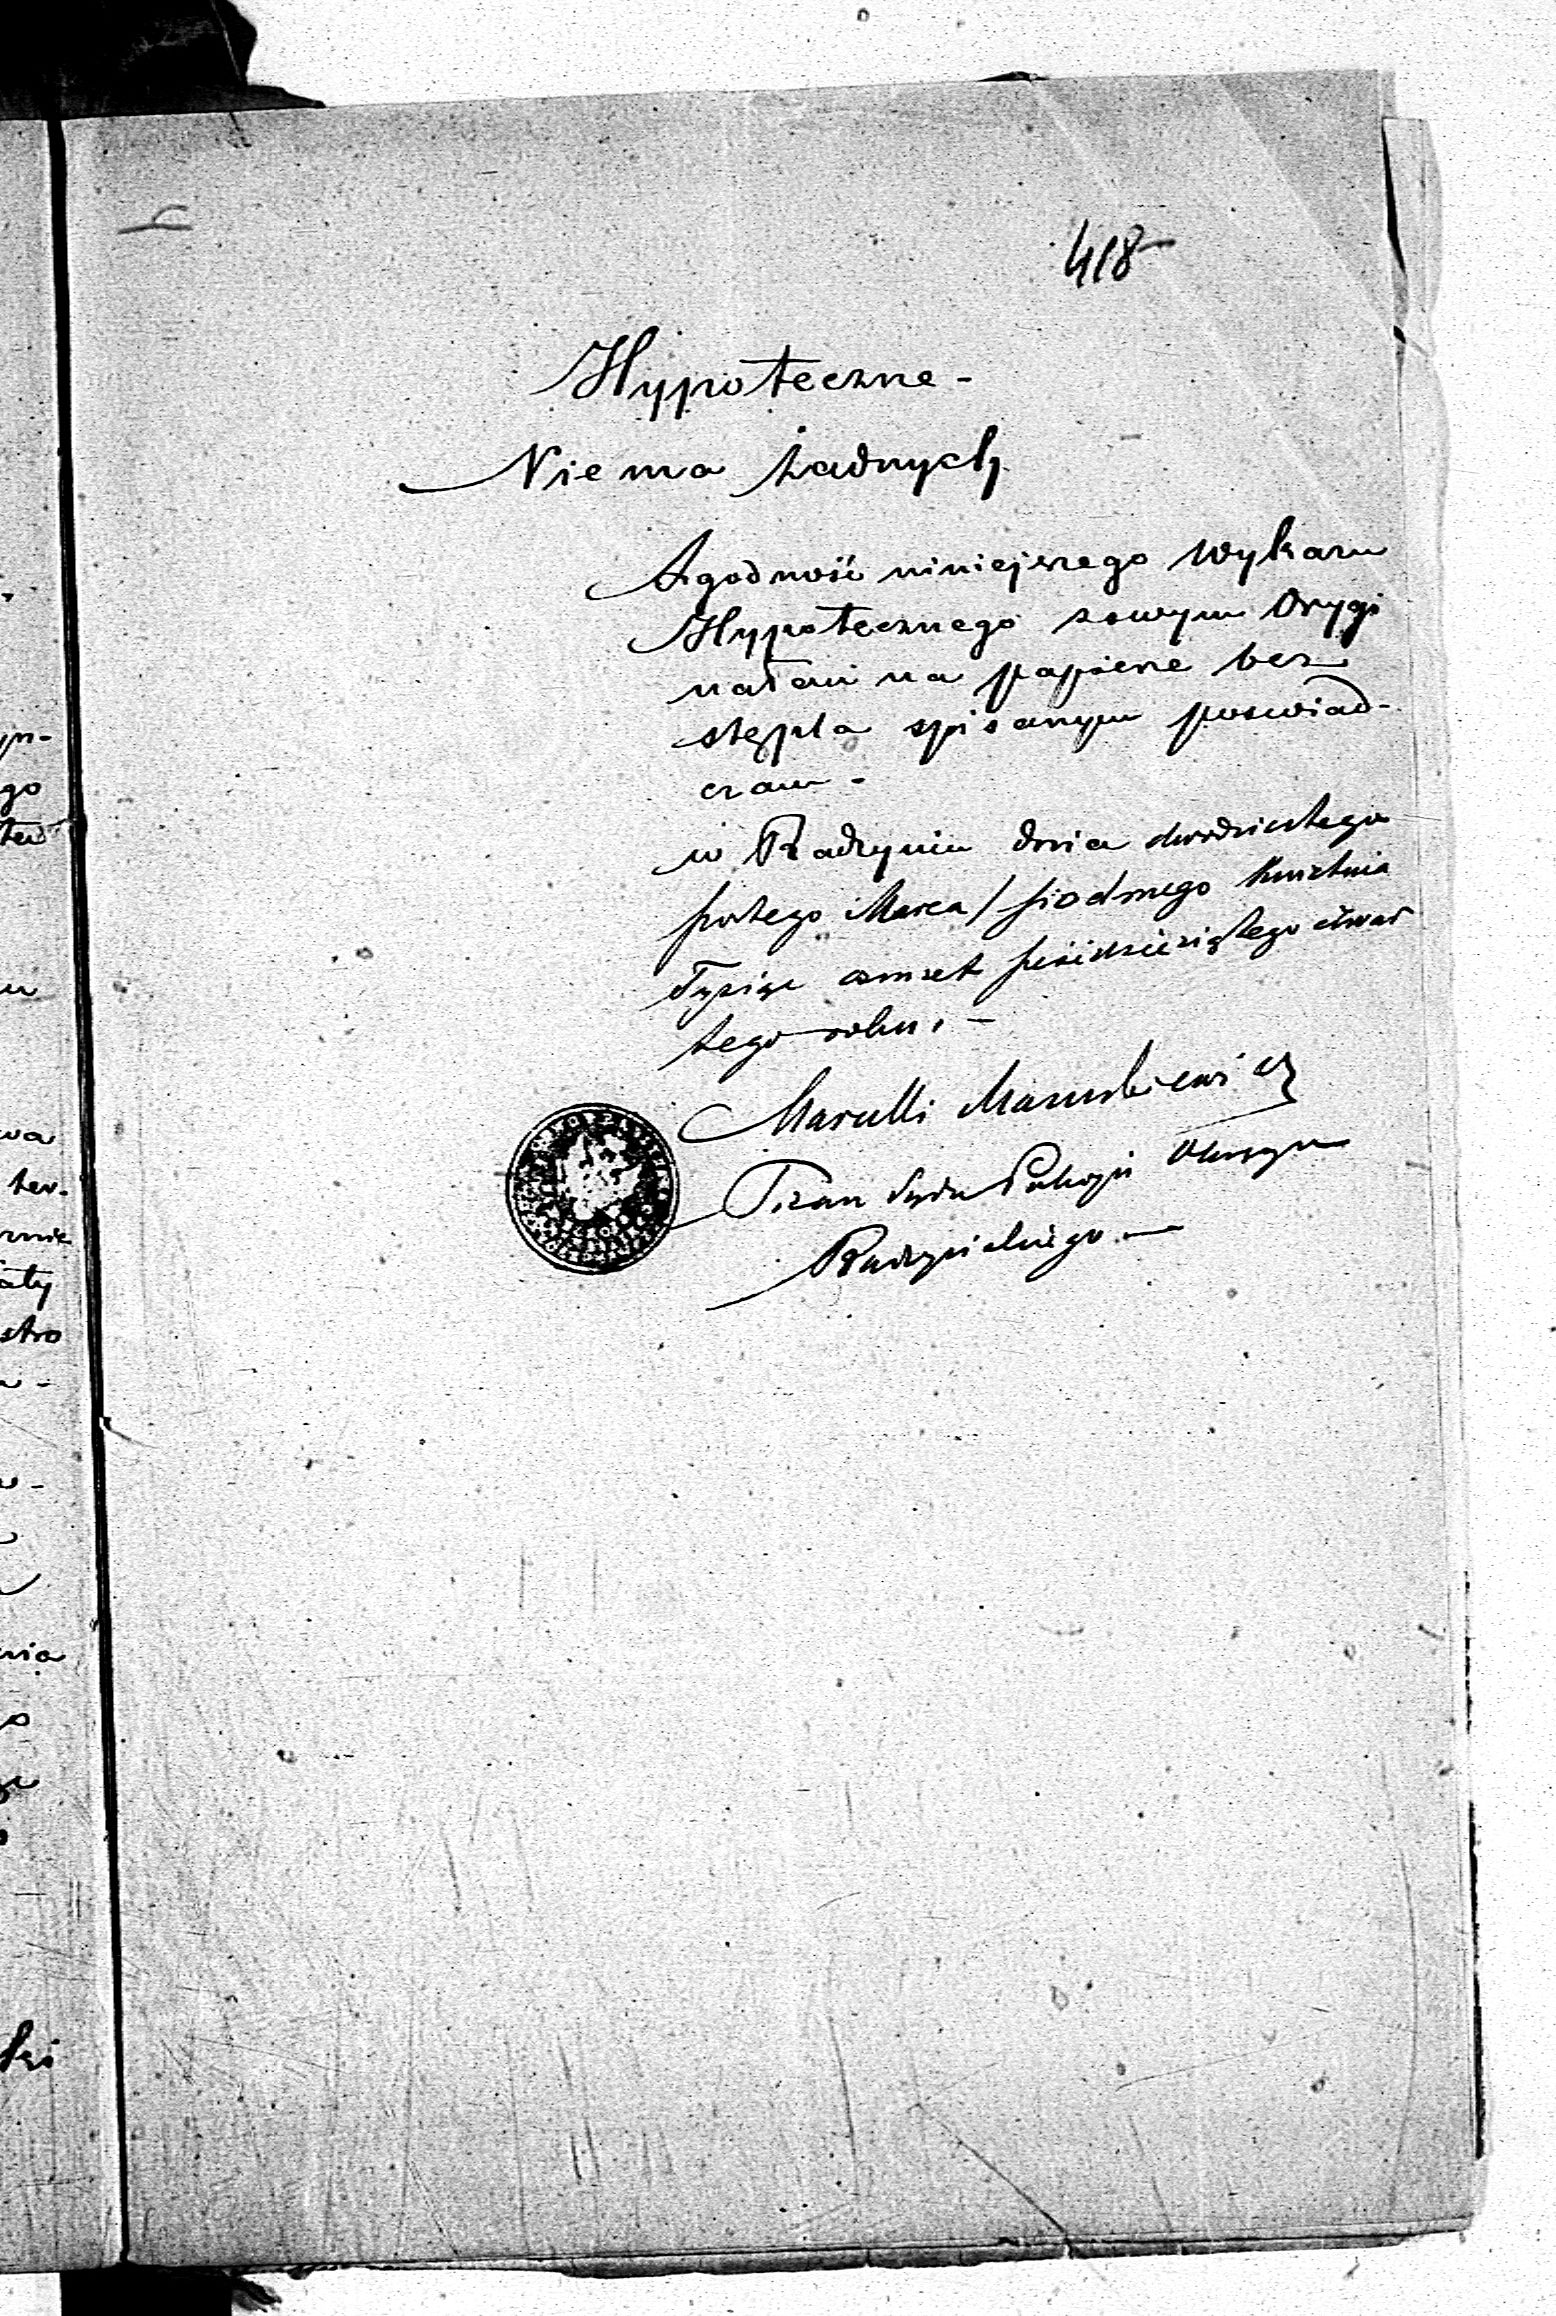 418
Hypoteczne -
Niema żadnych
Zgodność niniejszego Wykazu
Hypotecznego zowym Orygi
nałem na papierze bez
stępla spisanym poswiad-
czam -
w Radzyniu dnia dwudziestego
szóstego Marca / siodmego Kwietnia
Tysiąc osmset sześćdziesiątego czwar
tego roku. -
Pisarz Sądu Pokoju Okręgu
Radzyńskiego -